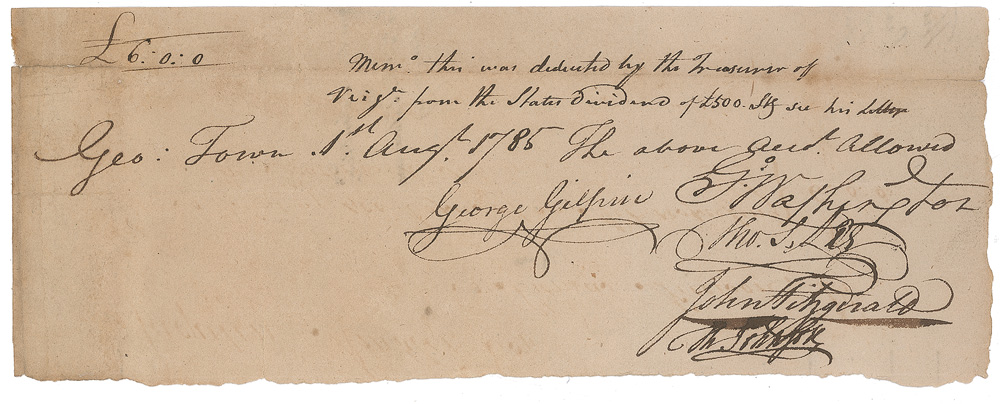 £ 6:0:0
Memo. this was deducted by the Treasurer of
Virga. from the States Dividend of £500. Stg see his Letter
Geo: Town 1st. Augt. 1785 The above Acct. Allowed
George Gilpin Go: Washington
Tho. S. Lee
John Fitzgerald
Th. Johnson